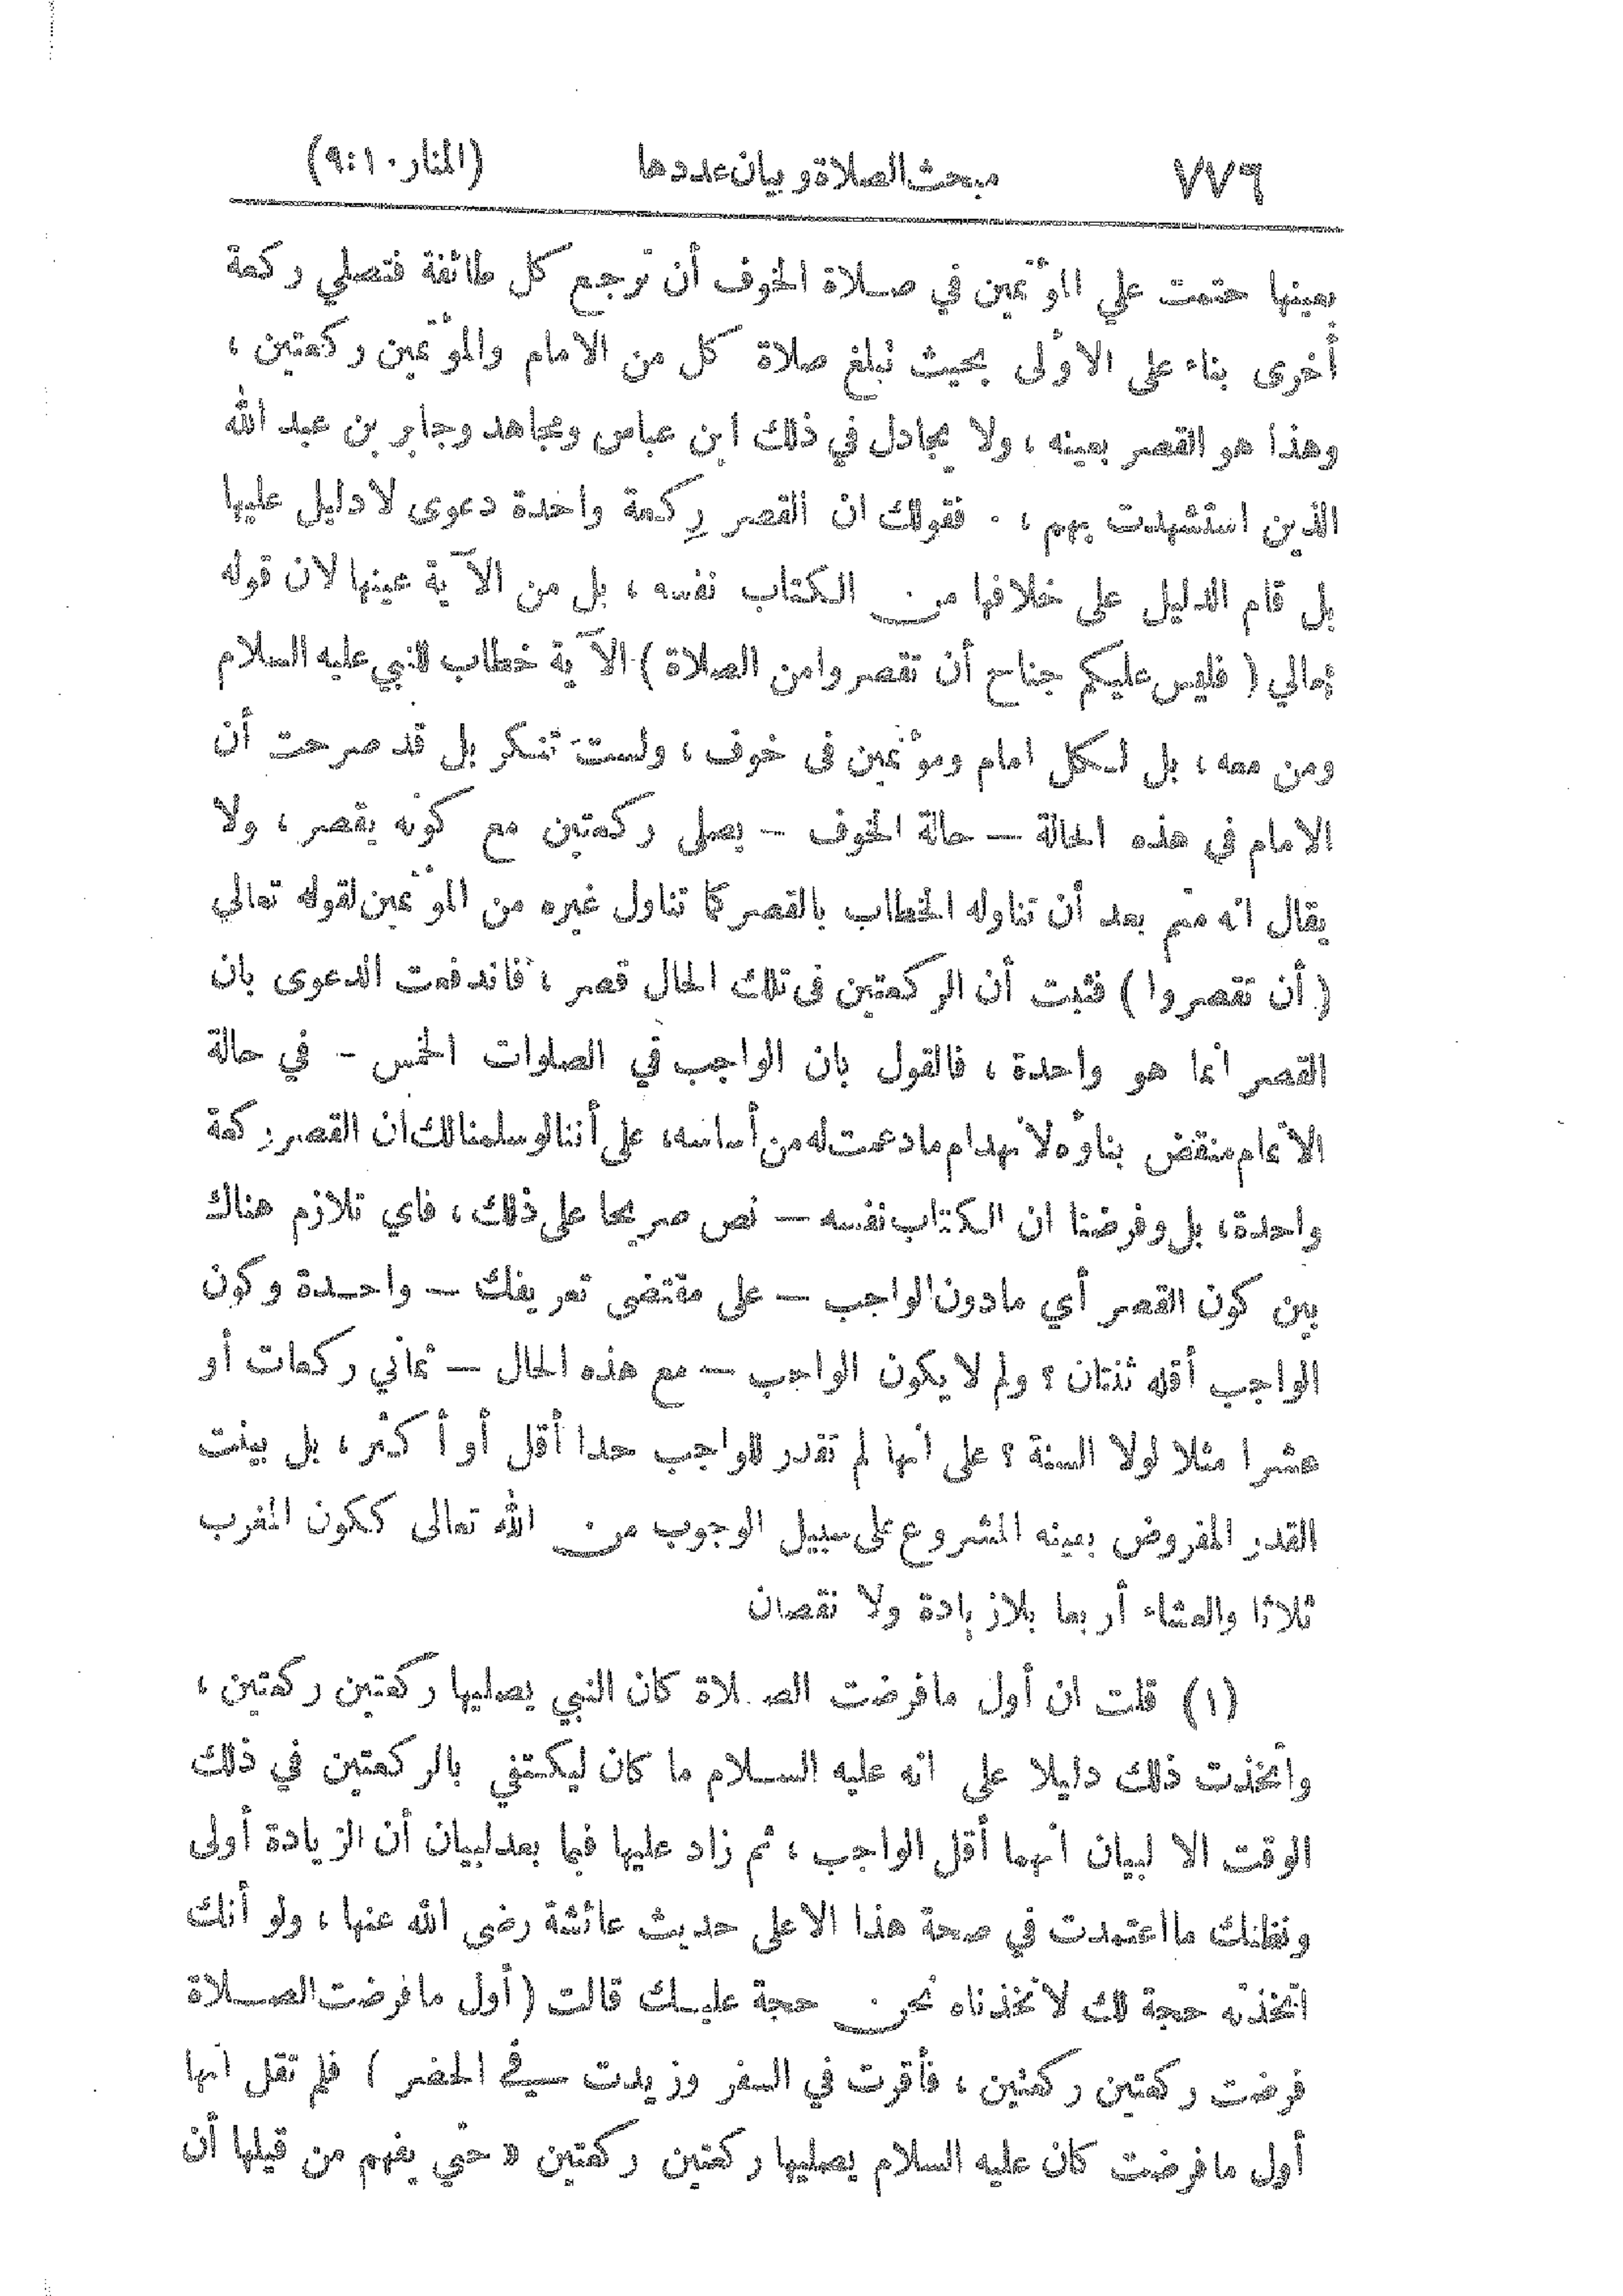 ٧٧٦ مبحث الصلاة وبيان عددها (المنار ١٠:٩)
بعينها حتمت على المؤتمين في صلاة الخوف أن ترجع كل طائفة فتصلي ركعة
أخرى بناء على الأولى بحيث تبلغ صلاة كل من الامام والمؤتمين ركعتين ،
وهذا هو القصر بعينه ، ولا يجادل في ذلك ابن عباس ومجاهد وجابر بن عبد الله
الذين استشهدت بهم ، . فقولك ان القصر ركعة واحدة دعوى لا دليل عليها
بل قام الدليل على خلافها من الكتاب نفسه ، بل من الآية عينها لان قوله
تعالى ( فليس عليكم جناح أن تقصروا من الصلاة ) الآية خطاب للنبي عليه السلام
ومن معه ، بل لكل امام ومؤتمين فى خوف ، ولستَ تنكر بل قد صرحت أن
الامام في هذه الحالة — حالة الخوف — يصلى ركعتين مع كونه يقصر ، ولا
يقال انه متم بعد أن تناوله الخطاب بالقصر كما تناول غيره من المؤتمين لقوله تعالى
( أن تقصروا ) فثبت أن الركعتين فى تلك الحال قصر ، فاندفعت الدعوى بان
القصر انما هو واحدة ، فالقول بان الواجب في الصلوات الخمس — في حالة
الاتمام منقض بناؤه لانهدام ما دعمت له من أساسه ، على أننا لو سلمنا لك ان القصر ركعة
واحدة ، بل وفرضنا ان الكتاب نفسه — نص صريحا على ذلك ، فاي تلازم هناك
بين كون القصر أي ما دون الواجب — على مقتضى تعريفك — واحدة وكون
الواجب أقله ثنتان ؟ ولم لا يكون الواجب — مع هذه الحال — ثماني ركعات أو
عشرا مثلا لولا السنة ؟ على انها لم تقدر للواجب حدا أقل أو أكثر ، بل بينت
القدر المفروض بعينه المشروع على سبيل الوجوب من الله تعالى ككون المغرب
ثلاثا والعشاء أربعا بلا زيادة ولا نقصان
(١) قلت ان أول ما فرضت الصلاة كان النبي يصليها ركعتين ركعتين ،
واتخذت ذلك دليلا على انه عليه السلام ما كان ليكتفي بالركعتين في ذلك
الوقت الا لبيان انهما أقل الواجب ، ثم زاد عليها فيما بعد لبيان أن الزيادة أولى
ونظنك ما اعتمدت في صحة هذا الا على حديث عائشة رضي الله عنها ، ولو أنك
اتخذته حجة لك لاتخذناه نحن حجة عليك قالت ( أول ما فرضت الصلاة
فرضت ركعتين ركعتين ، فأقرت في السفر وزيدت في الحضر ) فلم تقل انها
أول ما فرضت كان عليه السلام يصليها ركعتين ركعتين « حتى يفهم من قيلها أن